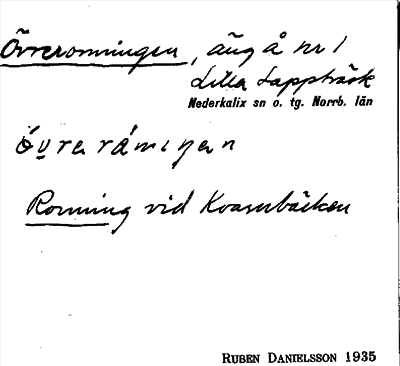 Övreromningen, äng å nr 1
Lilla Lappträsk
Nederkalix sn o. tg. Norrb. län
Romning vid Kvarnbäcken
RUBEN DANIELSSON 1935